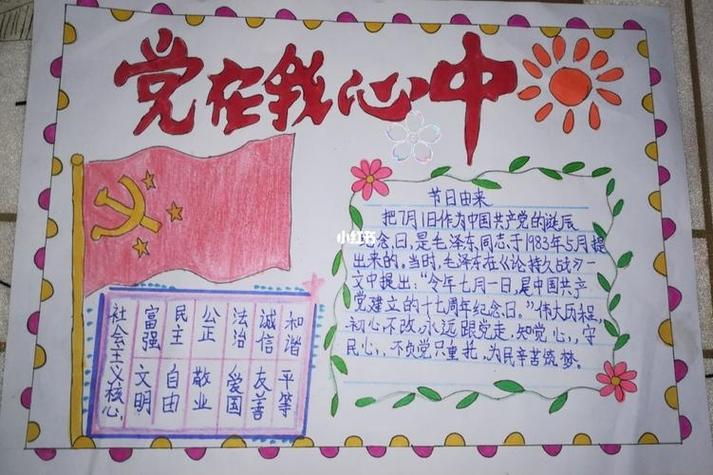 党在我心中
小红书
节日由来
把7月1日作为中国共产党的诞辰
纪念日,是毛泽东同志于1983年5月提
出来的。当时,毛泽东在《论持久战》一
文中提出:“今年七月一日,是中国共产
党建立的十七周年纪念日。”伟大历程,
初心不改,永远跟党走,知党心,,守
民心,,不负党只重托,为民辛苦筑梦。
社会主义核心
富强 民主 公正 法治 诚信 和谐
文明 自由 敬业 爱国 友善 平等